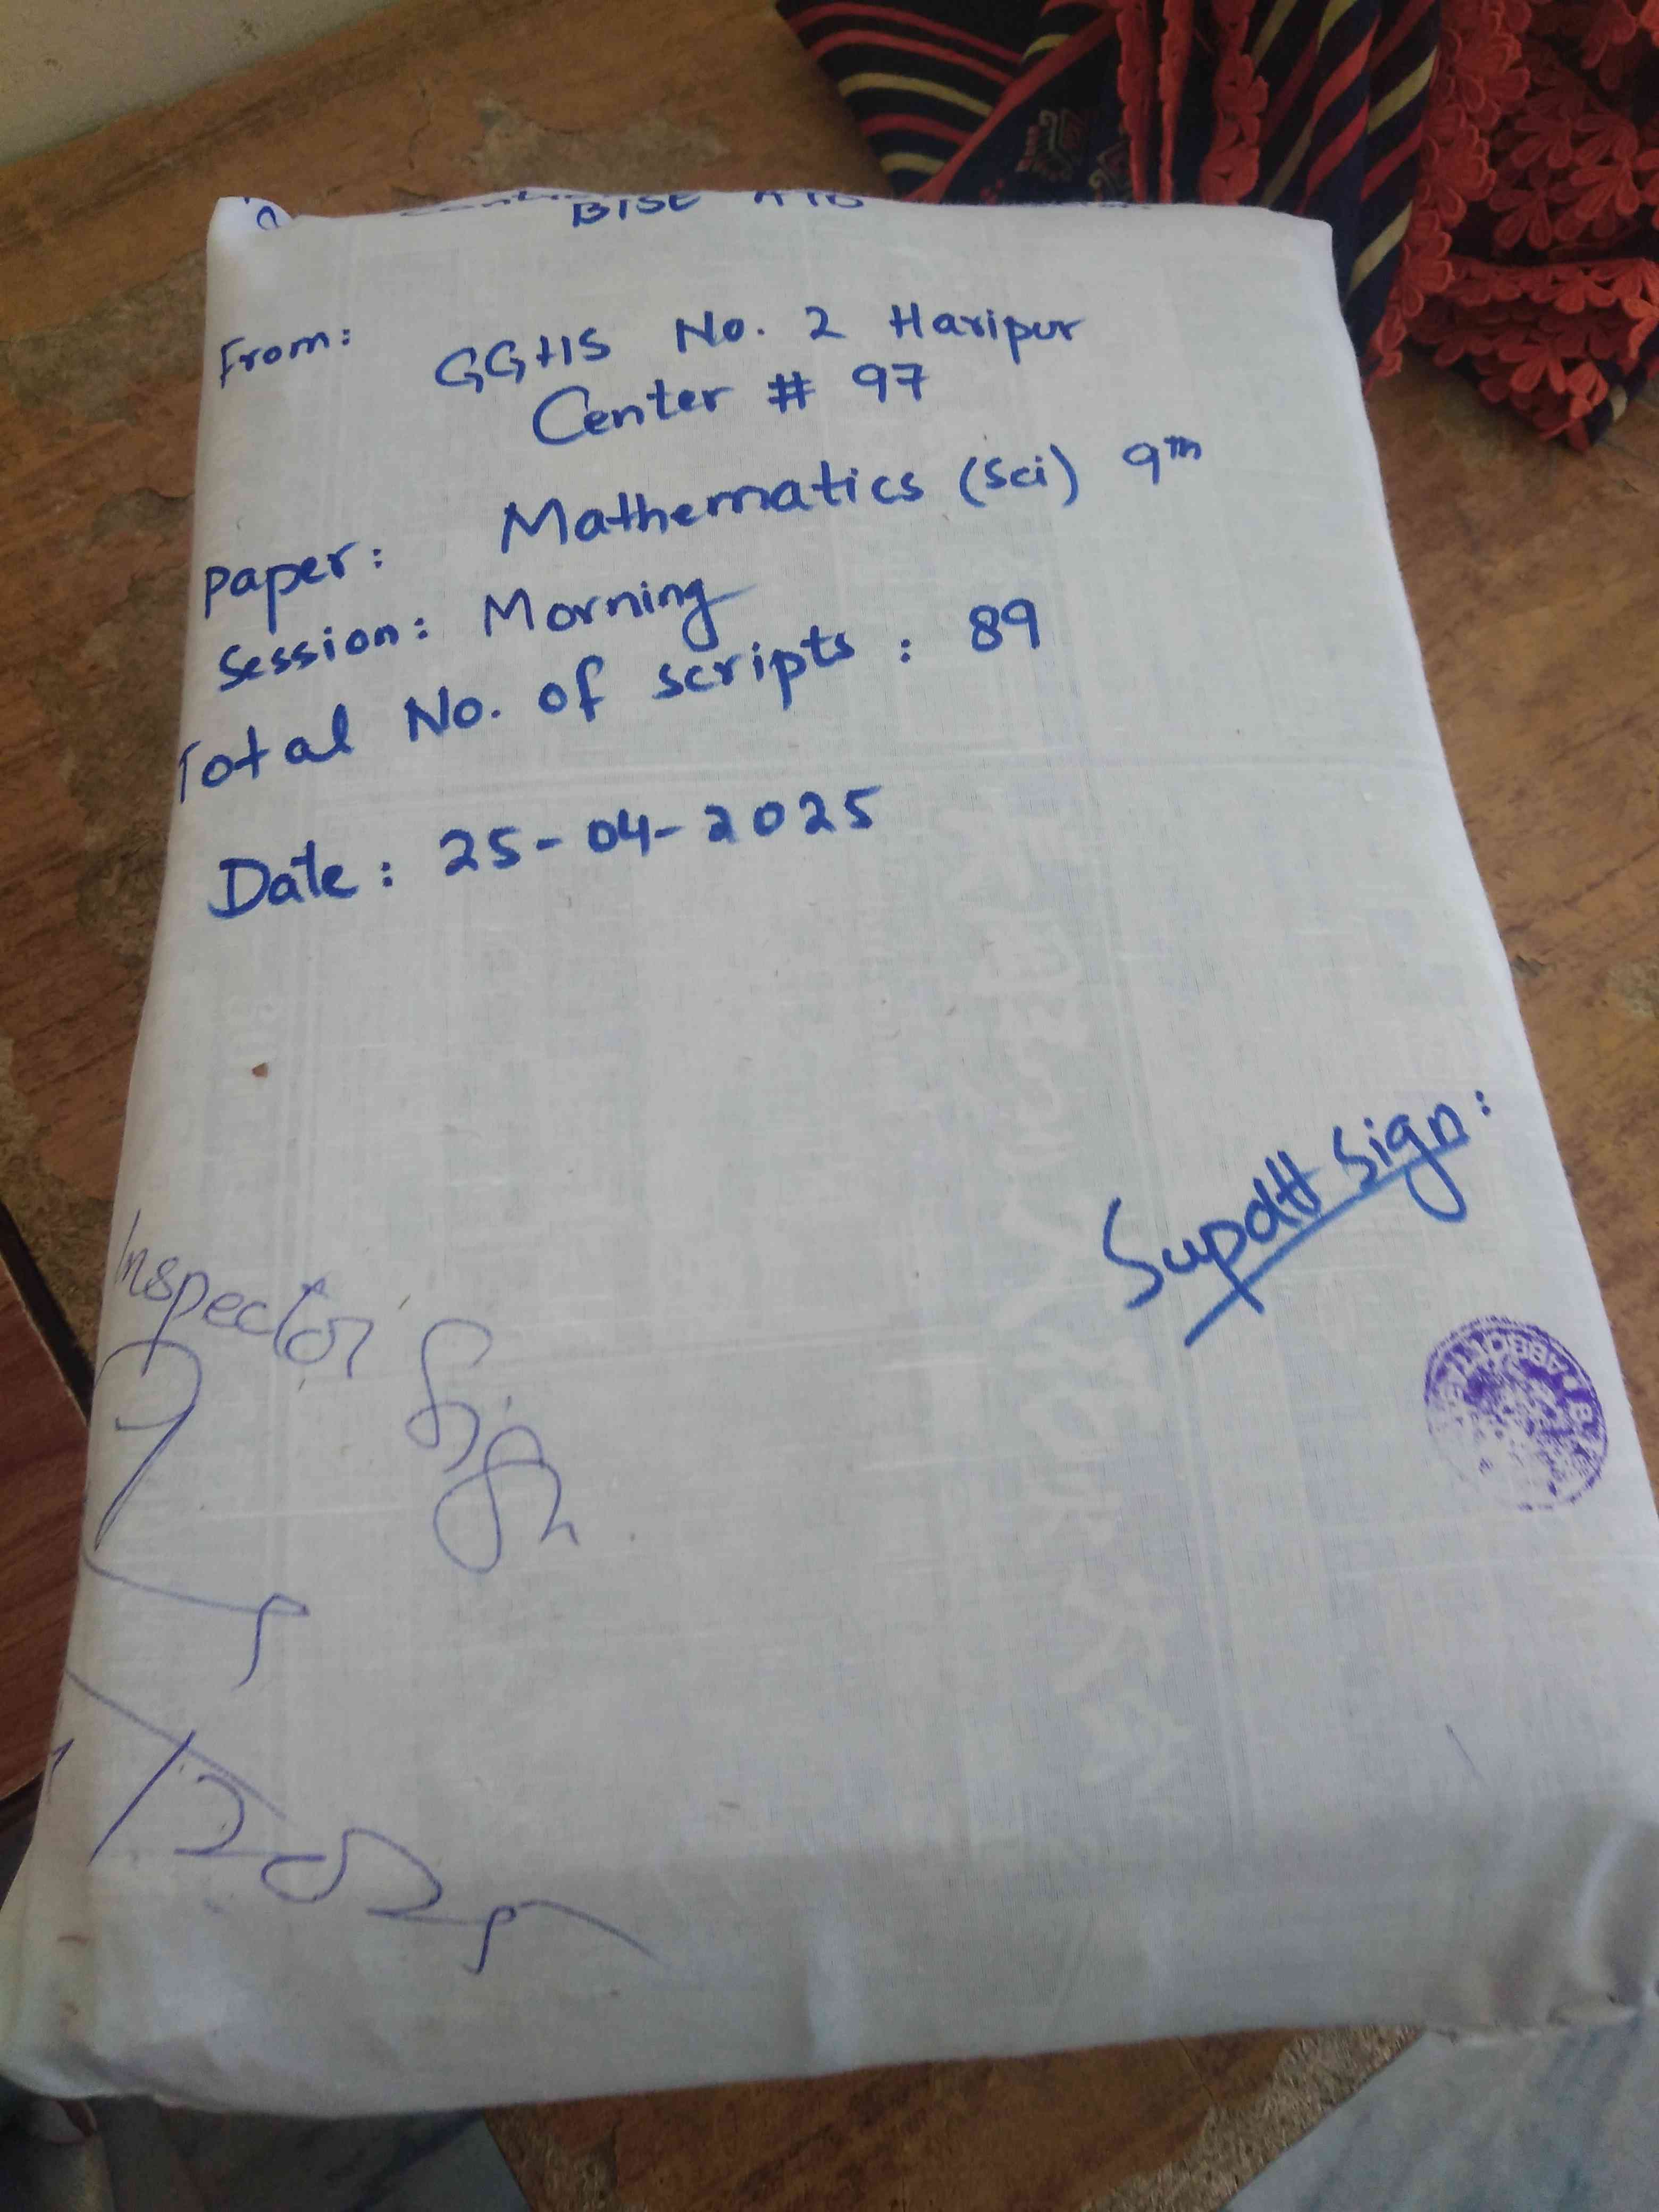 BISE ATD
From: GGHS No. 2 Haripur
Center # 97
Paper: Mathematics (Sci) 9th
Session: Morning
Total No. of scripts : 89
Date : 25-04-2025
Supdtt Sign:
Inspector Sign